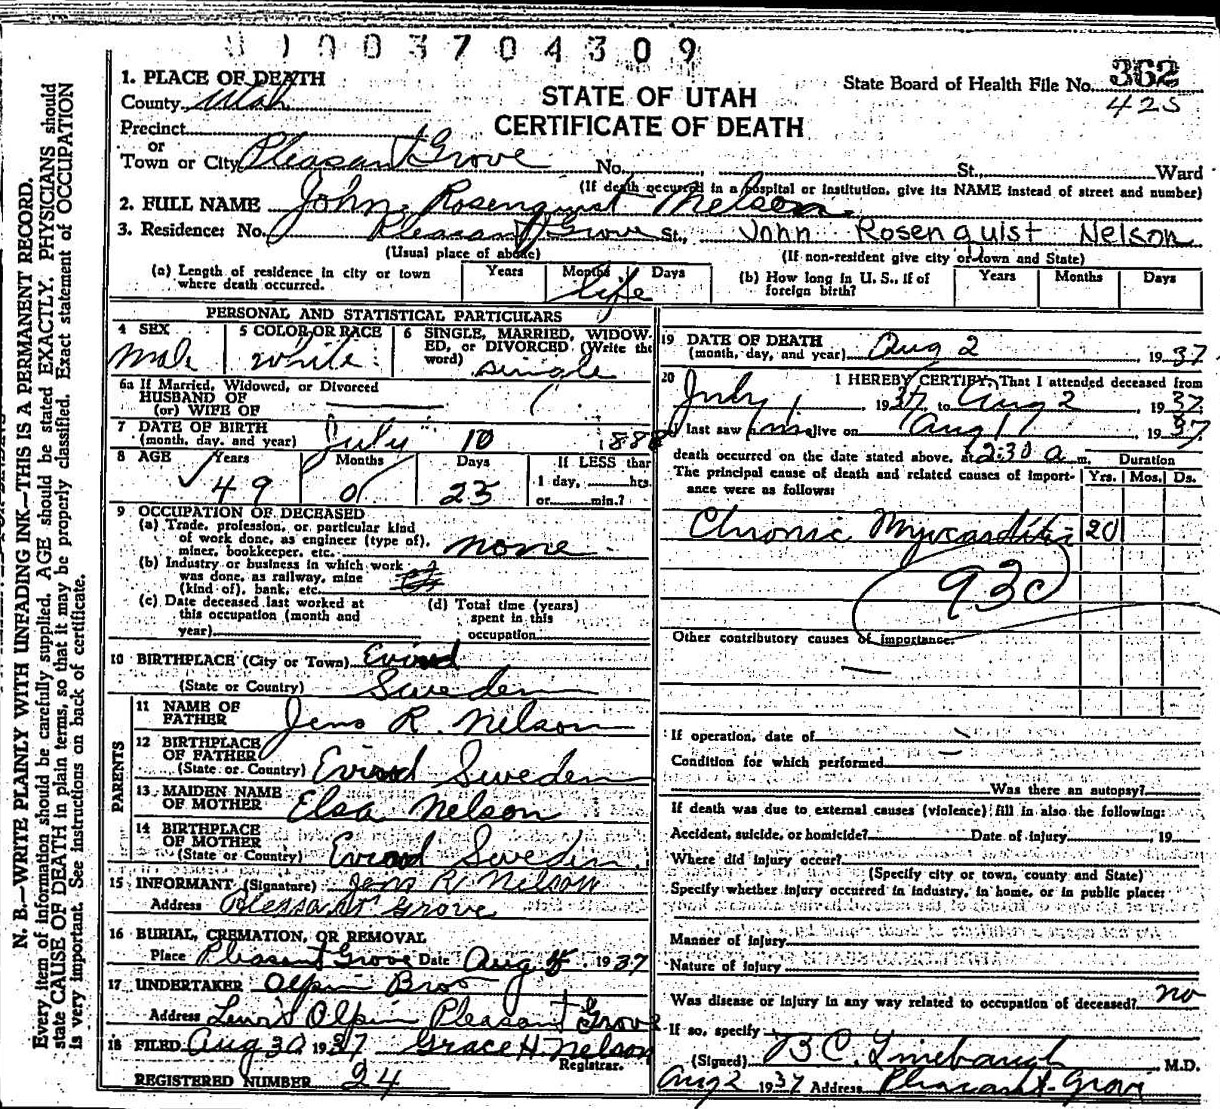 1003704309
1. PLACE OF DEATH
County Utah
STATE OF UTAH
CERTIFICATE OF DEATH
State Board of Health File No. 362
425
Precinct
or
Town or City Pleasant Grove No. St., Ward
(If death occurred in a hospital or institution, give its NAME instead of street and number)
2. FULL NAME John Rosenquist Nelson
3. Residence: No. Pleasant Grove St., John Rosenquist Nelson
(Usual place of abode) (If non-resident give city or town and State)
(a) Length of residence in city or town where death occurred. Years Months Days life
(b) How long in U. S., if of foreign birth? Years Months Days
PERSONAL AND STATISTICAL PARTICULARS
4 SEX Male
5 COLOR OR RACE White
6 SINGLE, MARRIED, WIDOWED, or DIVORCED (Write the word) single
6a If Married, Widowed, or Divorced
HUSBAND OF
(or) WIFE OF
7 DATE OF BIRTH
(month, day, and year) July 10 1888
8 AGE Years Months Days If LESS than
49 0 23 1 day, hrs.
or min.?
9 OCCUPATION OF DECEASED
(a) Trade, profession, or particular kind
of work done, as engineer (type of),
miner, bookkeeper, etc. none
(b) Industry or business in which work
was done, as railway, mine
(kind of), bank, etc.
(c) Date deceased last worked at
this occupation (month and
year)
(d) Total time (years)
spent in this
occupation
10 BIRTHPLACE (City or Town)
(State or Country) Sweden
PARENTS
11 NAME OF
FATHER Jens R. Nelson
12 BIRTHPLACE
OF FATHER
(State or Country) Sweden
13 MAIDEN NAME
OF MOTHER Elsa Nelson
14 BIRTHPLACE
OF MOTHER
(State or Country) Sweden
15 INFORMANT (Signature) Jens R. Nelson
Address Pleasant Grove
16 BURIAL, CREMATION, OR REMOVAL
Place Pleasant Grove Date Aug 1937
17 UNDERTAKER Olpin Bros
Address Lewis Olpin Pleasant Grove
18 FILED Aug 30 1937 Grace H. Nelson
Registrar.
REGISTERED NUMBER 24
19 DATE OF DEATH
(month, day, and year) Aug 2 1937
20 I HEREBY CERTIFY, That I attended deceased from
July 1 1937 to Aug 2, 1937.
I last saw him alive on Aug 1, 1937
death occurred on the date stated above, at 2:30 a m. Duration
The principal cause of death and related causes of importance were as follows: Yrs. Mos. Ds.
Chronic Myocarditis 20
93c
Other contributory causes of importance.
If operation, date of
Condition for which performed
Was there an autopsy?
If death was due to external causes (violence) fill in also the following:
Accident, suicide, or homicide? Date of injury , 19
Where did injury occur?
(Specify city or town, county and State)
Specify whether injury occurred in industry, in home, or in public place:
Manner of injury
Nature of injury
Was disease or injury in any way related to occupation of deceased? no
If so, specify
(Signed) B C. Linebaugh M.D.
Aug 2 1937 Address Pleasant Grove
N. B.—WRITE PLAINLY WITH UNFADING INK—THIS IS A PERMANENT RECORD.
Every item of information should be carefully supplied. AGE should be stated EXACTLY. PHYSICIANS should
state CAUSE OF DEATH in plain terms, so that it may be properly classified. Exact statement of OCCUPATION
is very important. See instructions on back of certificate.